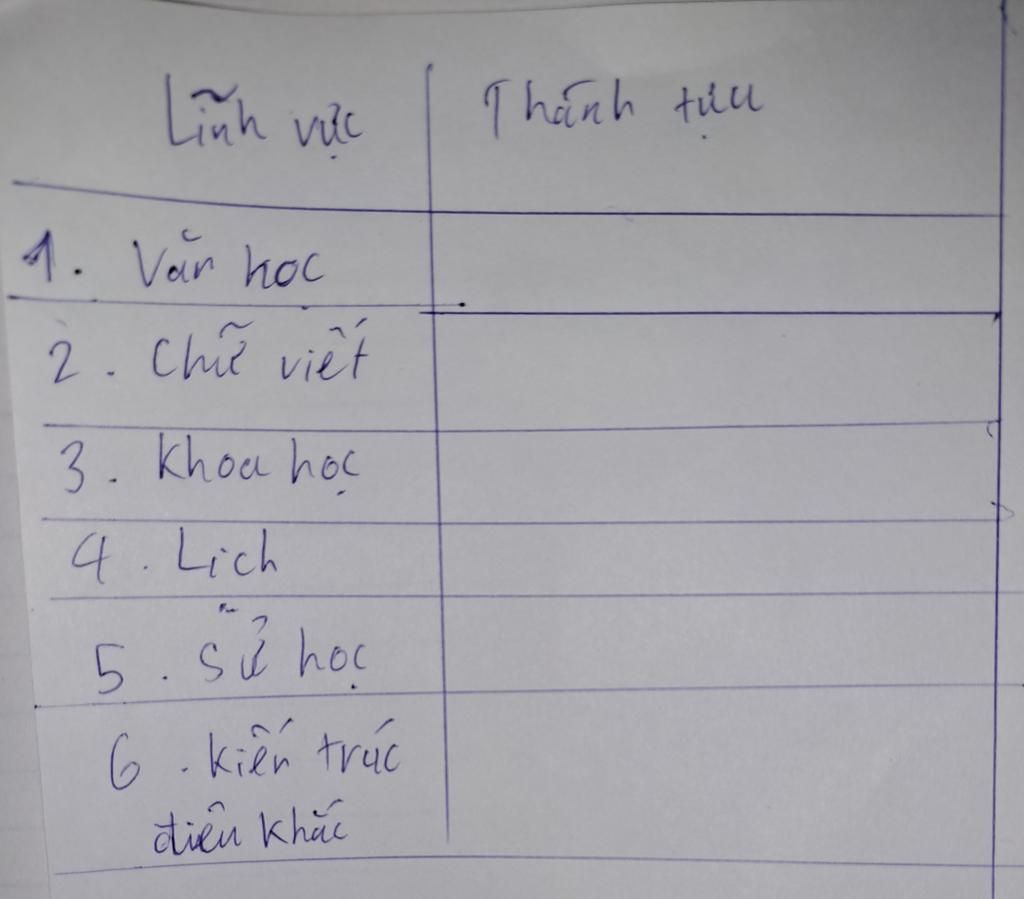 Lĩnh vực Thành tựu
1. Văn học
2. Chữ viết
3. Khoa học
4. Lịch
5. Sử học
6. kiến trúc
điêu khắc